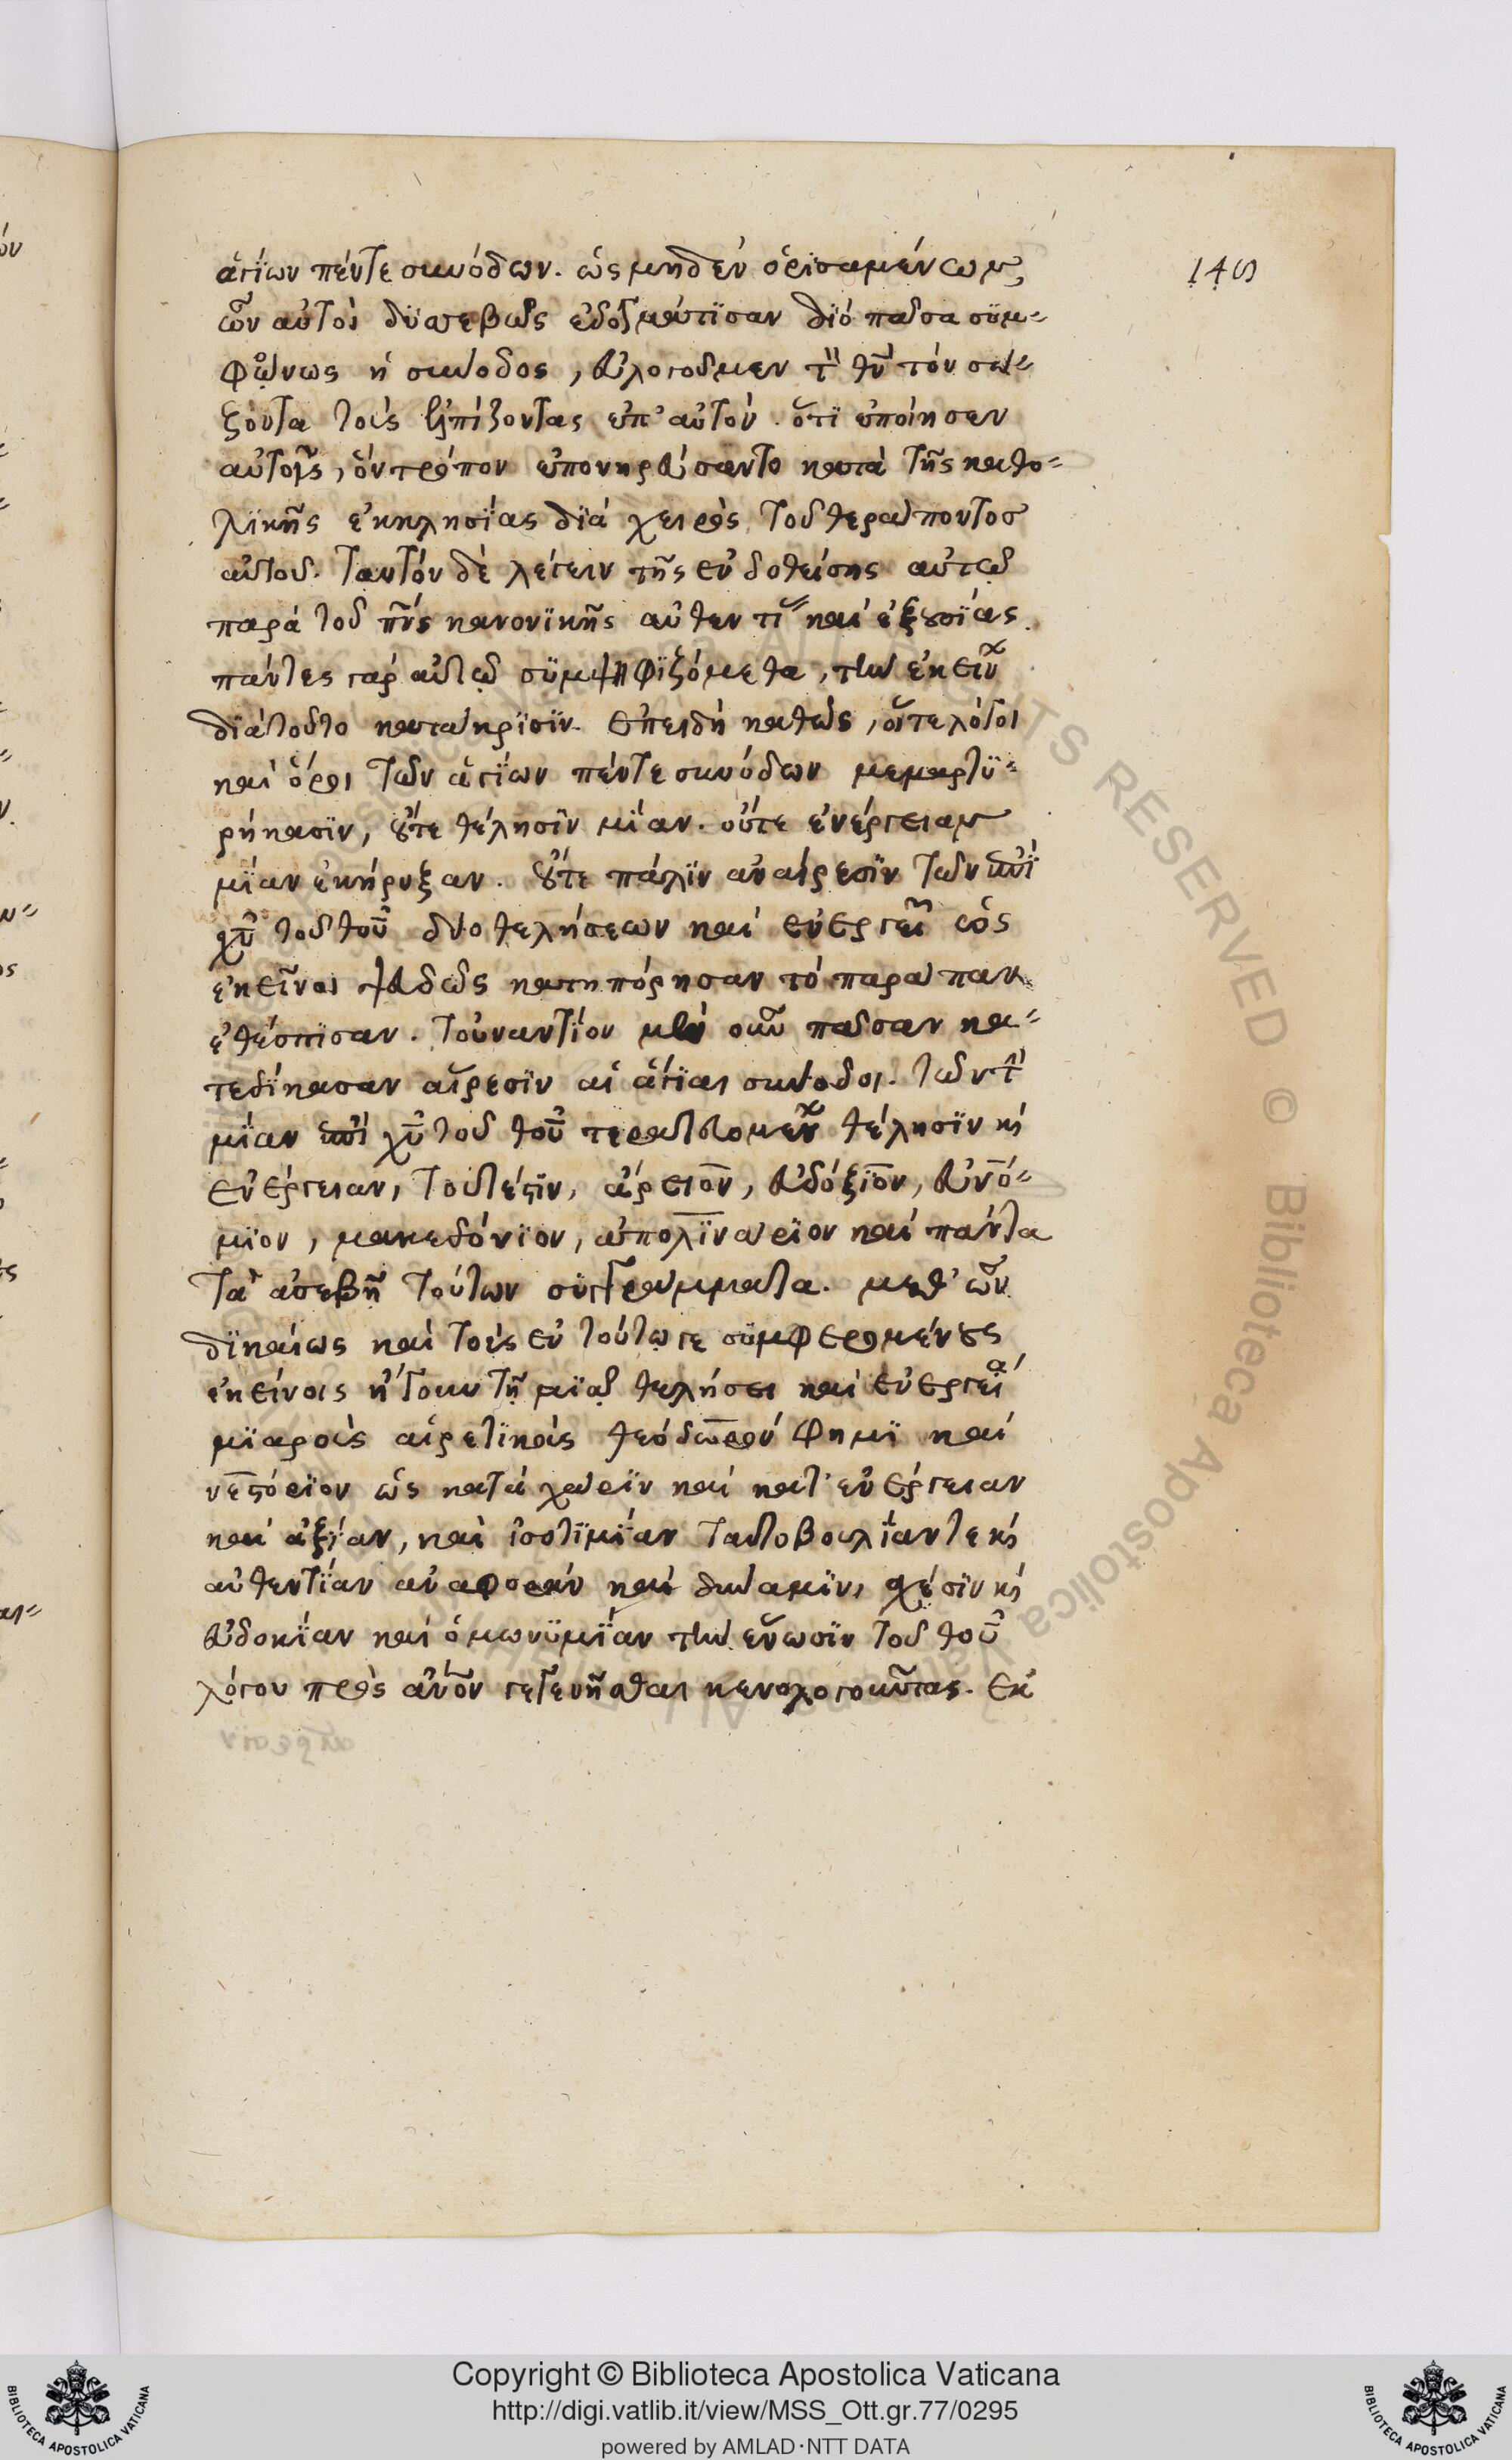 ἁγίων πέντε συνόδων. ὡς μηδὲν ὁρισαμένων
146
ὧν αὐτοὶ δυσσεβῶς ἐδογμάτισαν διὸ πᾶσα σύμ-
φώνως ἡ σύνοδος, εὐλογοῦμεν τὸν θν τὸν σώ-
ζοντα τοὺς ἐλπίζοντας ἐπ' αὐτόν. ὅτι ἐποίησεν
αὐτοῖς, ὃν τρόπον ἐπονηρεύσαντο κατὰ τῆς καθο-
λικῆς ἐκκλησίας διὰ χειρὸς τοῦ θεράποντος
αὐτοῦ. ταυτὸν δὲ λέγειν τῆς ἐνδοθείσης αὐτῷ
παρὰ τοῦ πνς κανονικῆς αὐθεντι καὶ ἐξουσίας.
πάντες γὰρ αὐτῷ συμψηφιζόμεθα, τὴν ἐκείν
διὰ τοῦτο κατάκρισιν. ἐπειδὴ καθὼς, οἵτε λόγοι
καὶ ὅροι τῶν ἁγίων πέντε συνόδων μεμαρτυ-
ρήκασιν, οὔτε θέλησιν μίαν. οὔτε ἐνέργειαν
μίαν ἐκήρυξαν. οὔτε πάλιν ἀναίρεσιν τῶν ἐπὶ
χυ τοῦ θου δύο θελήσεων καὶ ἐνεργει ὡς
ἐκεῖνοι ψευδῶς κατηπόρησαν τὸ παράπαν
ἐθέσπισαν. τοὐναντίον μὲν οὖν πᾶσαν κα-
τεδίκασαν αἵρεσιν αἱ ἅγιαι σύνοδοι. τῶν τ
μίαν ἐπὶ χυ τοῦ θου τερατευομέν θέλησιν κ
ἐνέργειαν, τουτέστιν, ἄρειον, εὐδόξιον, εὐνό-
μιον, μακεδόνιον, ἀπολινάριον καὶ πάντα
τὰ ἀσεβῆ τούτων συγγράμματα. μεθ' ὧν
δικαίως καὶ τοὺς ἐν τούτῳ γε συμφερομένους
ἐκείνοις ἤγουν τῇ μιᾷ θελήσει καὶ ἐνεργεία
μιαροὺς αἱρετικοὺς θεόδωρόν φημι καὶ
νεστόριον ὡς κατὰ χάριν καὶ κατ' ἐνέργειαν
καὶ ἀξίαν, καὶ ἰσοτιμίαν ταυτοβουλίαν τε κ
αὐθεντίαν ἀναφορὰν καὶ δύναμιν, σχέσιν κ
εὐδοκίαν καὶ ὁμωνυμίαν τὴν ἕνωσιν τοῦ θου
λόγου πρὸς ἀνον γεγενῆσθαι κενολογοῦντας. ἐκ
Copyright © Biblioteca Apostolica Vaticana
http://digi.vatlib.it/view/MSS_Ott.gr.77/0295
powered by AMLAD·NTT DATA